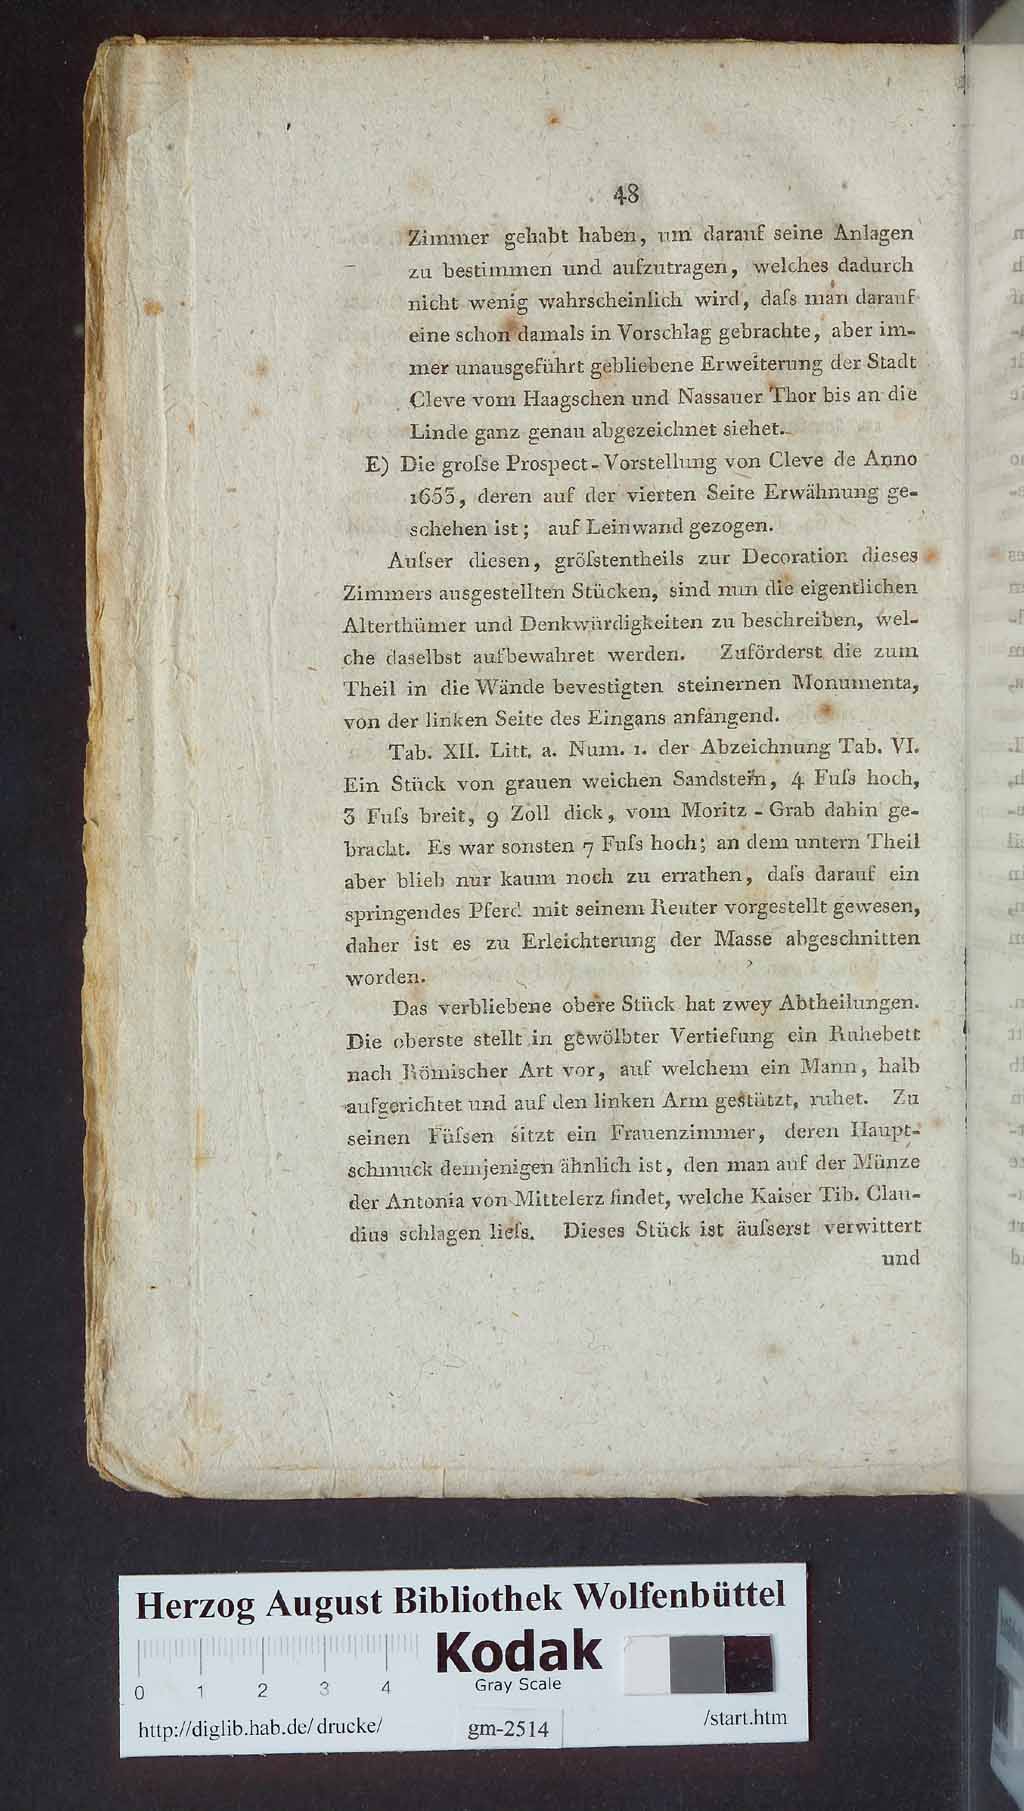 48
Zimmer gehabt haben, um darauf seine Anlagen
zu bestimmen und aufzutragen, welches dadurch
nicht wenig wahrscheinlich wird, daſs man darauf
eine schon damals in Vorschlag gebrachte, aber im-
mer unausgeführt gebliebene Erweiterung der Stadt
Cleve vom Haagschen und Nassauer Thor bis an die
Linde ganz genau abgezeichnet siehet.
E) Die groſse Prospect-Vorstellung von Cleve de Anno
1653, deren auf der vierten Seite Erwähnung ge-
schehen ist; auf Leinwand gezogen.
Auſser diesen, gröſstentheils zur Decoration dieses
Zimmers ausgestellten Stücken, sind nun die eigentlichen
Alterthümer und Denkwürdigkeiten zu beschreiben, wel-
che daselbst aufbewahret werden. Zuförderst die zum
Theil in die Wände bevestigten steinernen Monumenta,
von der linken Seite des Eingans anfangend.
Tab. XII. Litt. a. Num. 1. der Abzeichnung Tab. VI.
Ein Stück von grauen weichen Sandstein, 4 Fuſs hoch,
3 Fuſs breit, 9 Zoll dick, vom Moritz-Grab dahin ge-
bracht. Es war sonsten 7 Fuſs hoch; an dem untern Theil
aber blieb nur kaum noch zu errathen, daſs darauf ein
springendes Pferd mit seinem Reuter vorgestellt gewesen,
daher ist es zu Erleichterung der Masse abgeschnitten
worden.
Das verbliebene obere Stück hat zwey Abtheilungen.
Die oberste stellt in gewölbter Vertiefung ein Ruhebett
nach Römischer Art vor, auf welchem ein Mann, halb
aufgerichtet und auf den linken Arm gestützt, ruhet. Zu
seinen Füſsen sitzt ein Frauenzimmer, deren Haupt-
schmuck demjenigen ähnlich ist, den man auf der Münze
der Antonia von Mittelerz findet, welche Kaiser Tib. Clau-
dius schlagen lieſs. Dieses Stück ist äuſserst verwittert
und
Herzog August Bibliothek Wolfenbüttel
Kodak
Gray Scale
0 1 2 3 4
http://diglib.hab.de/drucke/ gm-2514 /start.htm